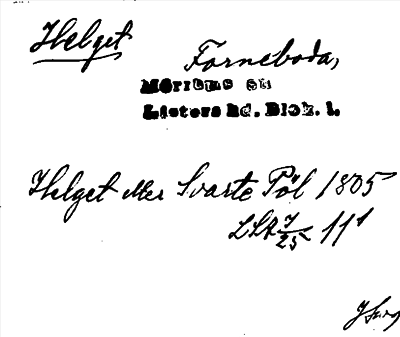 Helget
Forneboda,
Mörrums sn
Listers hd. Blek. l.
Helget eller Svarte Pöl 1805
LSA 7/25 11¹